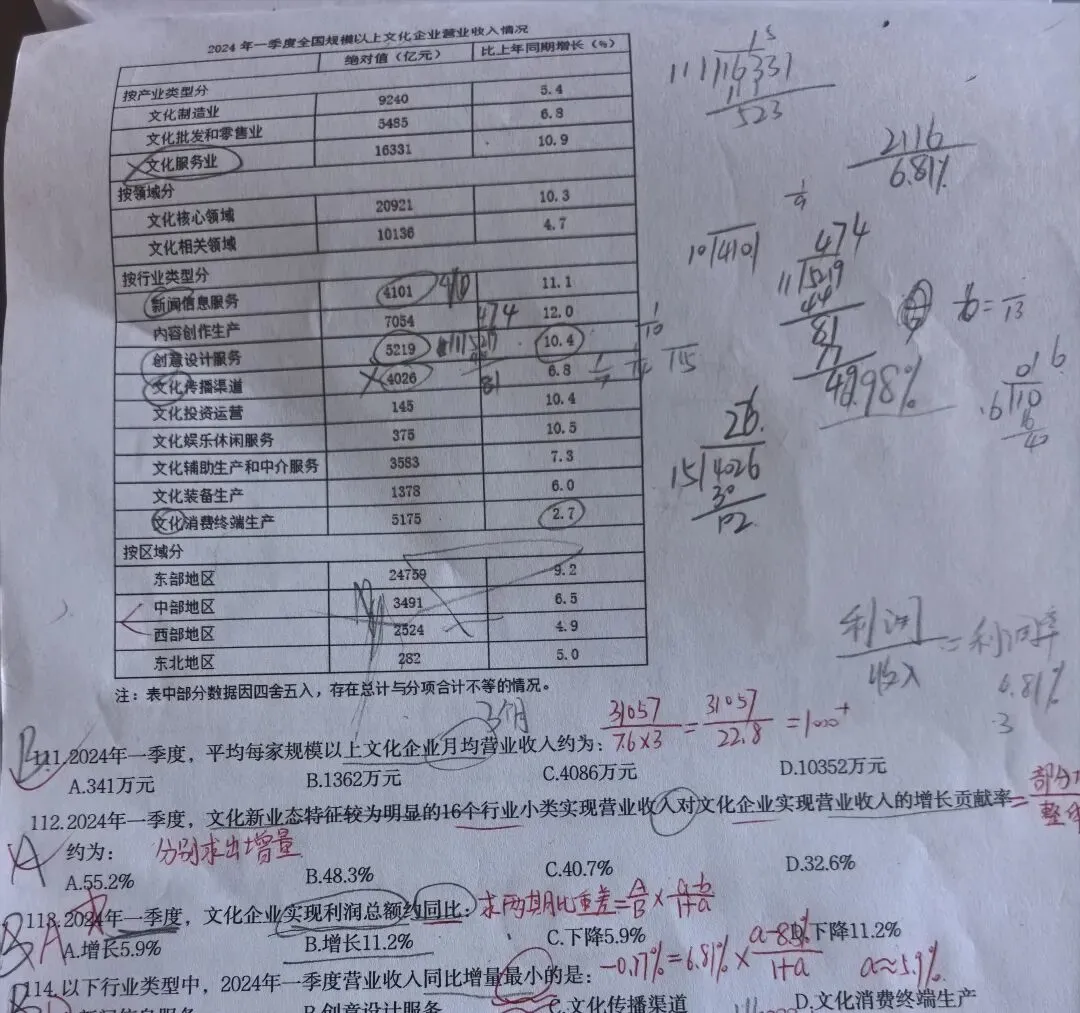 2024 年一季度全国规模以上文化企业营业收入情况
绝对值（亿元） 比上年同期增长（%）
按产业类型分
文化制造业 9240 5.4
文化批发和零售业 5485 6.8
文化服务业 16331 10.9
按领域分
文化核心领域 20921 10.3
文化相关领域 10136 4.7
按行业类型分
新闻信息服务 4101 11.1
内容创作生产 7054 12.0
创意设计服务 5219 10.4
文化传播渠道 4026 6.8
文化投资运营 145 10.4
文化娱乐休闲服务 375 10.5
文化辅助生产和中介服务 3583 7.3
文化装备生产 1378 6.0
文化消费终端生产 5175 2.7
按区域分
东部地区 24759 9.2
中部地区 3491 6.5
西部地区 2524 4.9
东北地区 282 5.0
注：表中部分数据因四舍五入，存在总计与分项合计不等的情况。
15
111 16331
111
523
2116
6.81%
1/9
101 4101
474
11 5219
44
81
77
48.98%
26
15 4026
30
102
利润/收入=利润率
6.81%
3个月
31057/7.6×3=31057/22.8=1000+
111.2024年一季度，平均每家规模以上文化企业月均营业收入约为：
A.341万元 B.1362万元 C.4086万元 D.10352万元
112.2024年一季度，文化新业态特征较为明显的16个行业小类实现营业收入对文化企业实现营业收入的增长贡献率
约为： 分别求出增量
A.55.2% B.48.3% C.40.7% D.32.6%
113.2024年一季度，文化企业实现利润总额约同比：
求两期比重差=A/B×a-b/1+a
A.增长5.9% B.增长11.2% C.下降5.9% D.下降11.2%
-0.17%=6.81%×
a≈5.9%
114.以下行业类型中，2024年一季度营业收入同比增量最小的是：
新闻信息服务 B.创意设计服务 C.文化传播渠道 D.文化消费终端生产